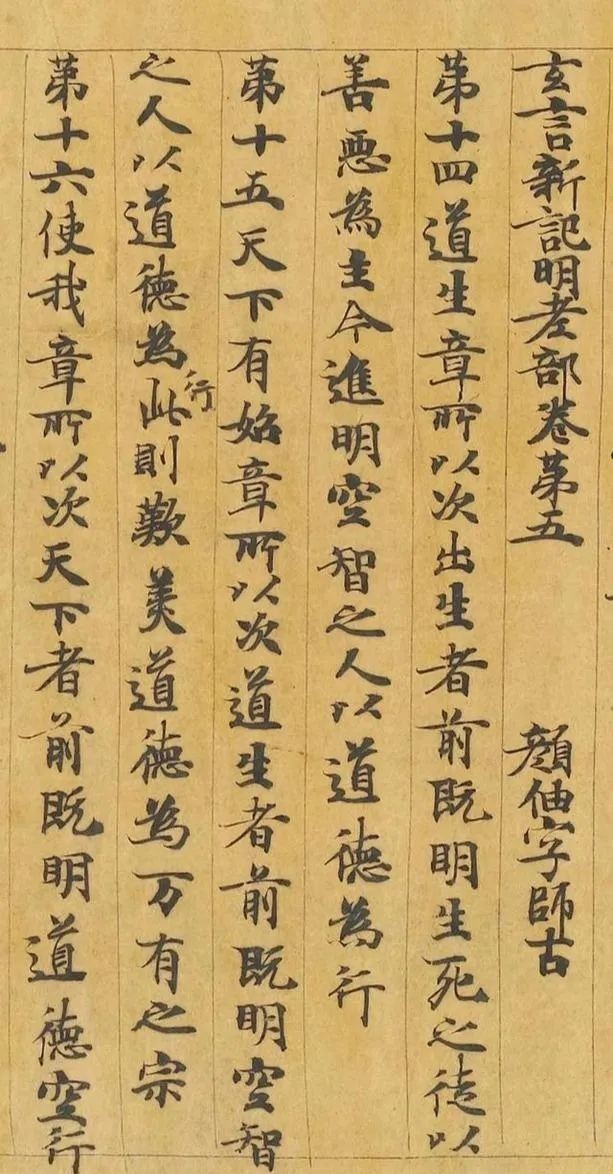 玄言新記明老部卷第五 顏伷字師古
第十四道生章所以次出生者前既明生死之徒以
善惡為主今進明空智之人以道德為行
第十五天下有始章所以次道生者前既明空智
之人以道德為行此則歎美道德為万有之宗
第十六使我章所以次天下者前既明道德空行